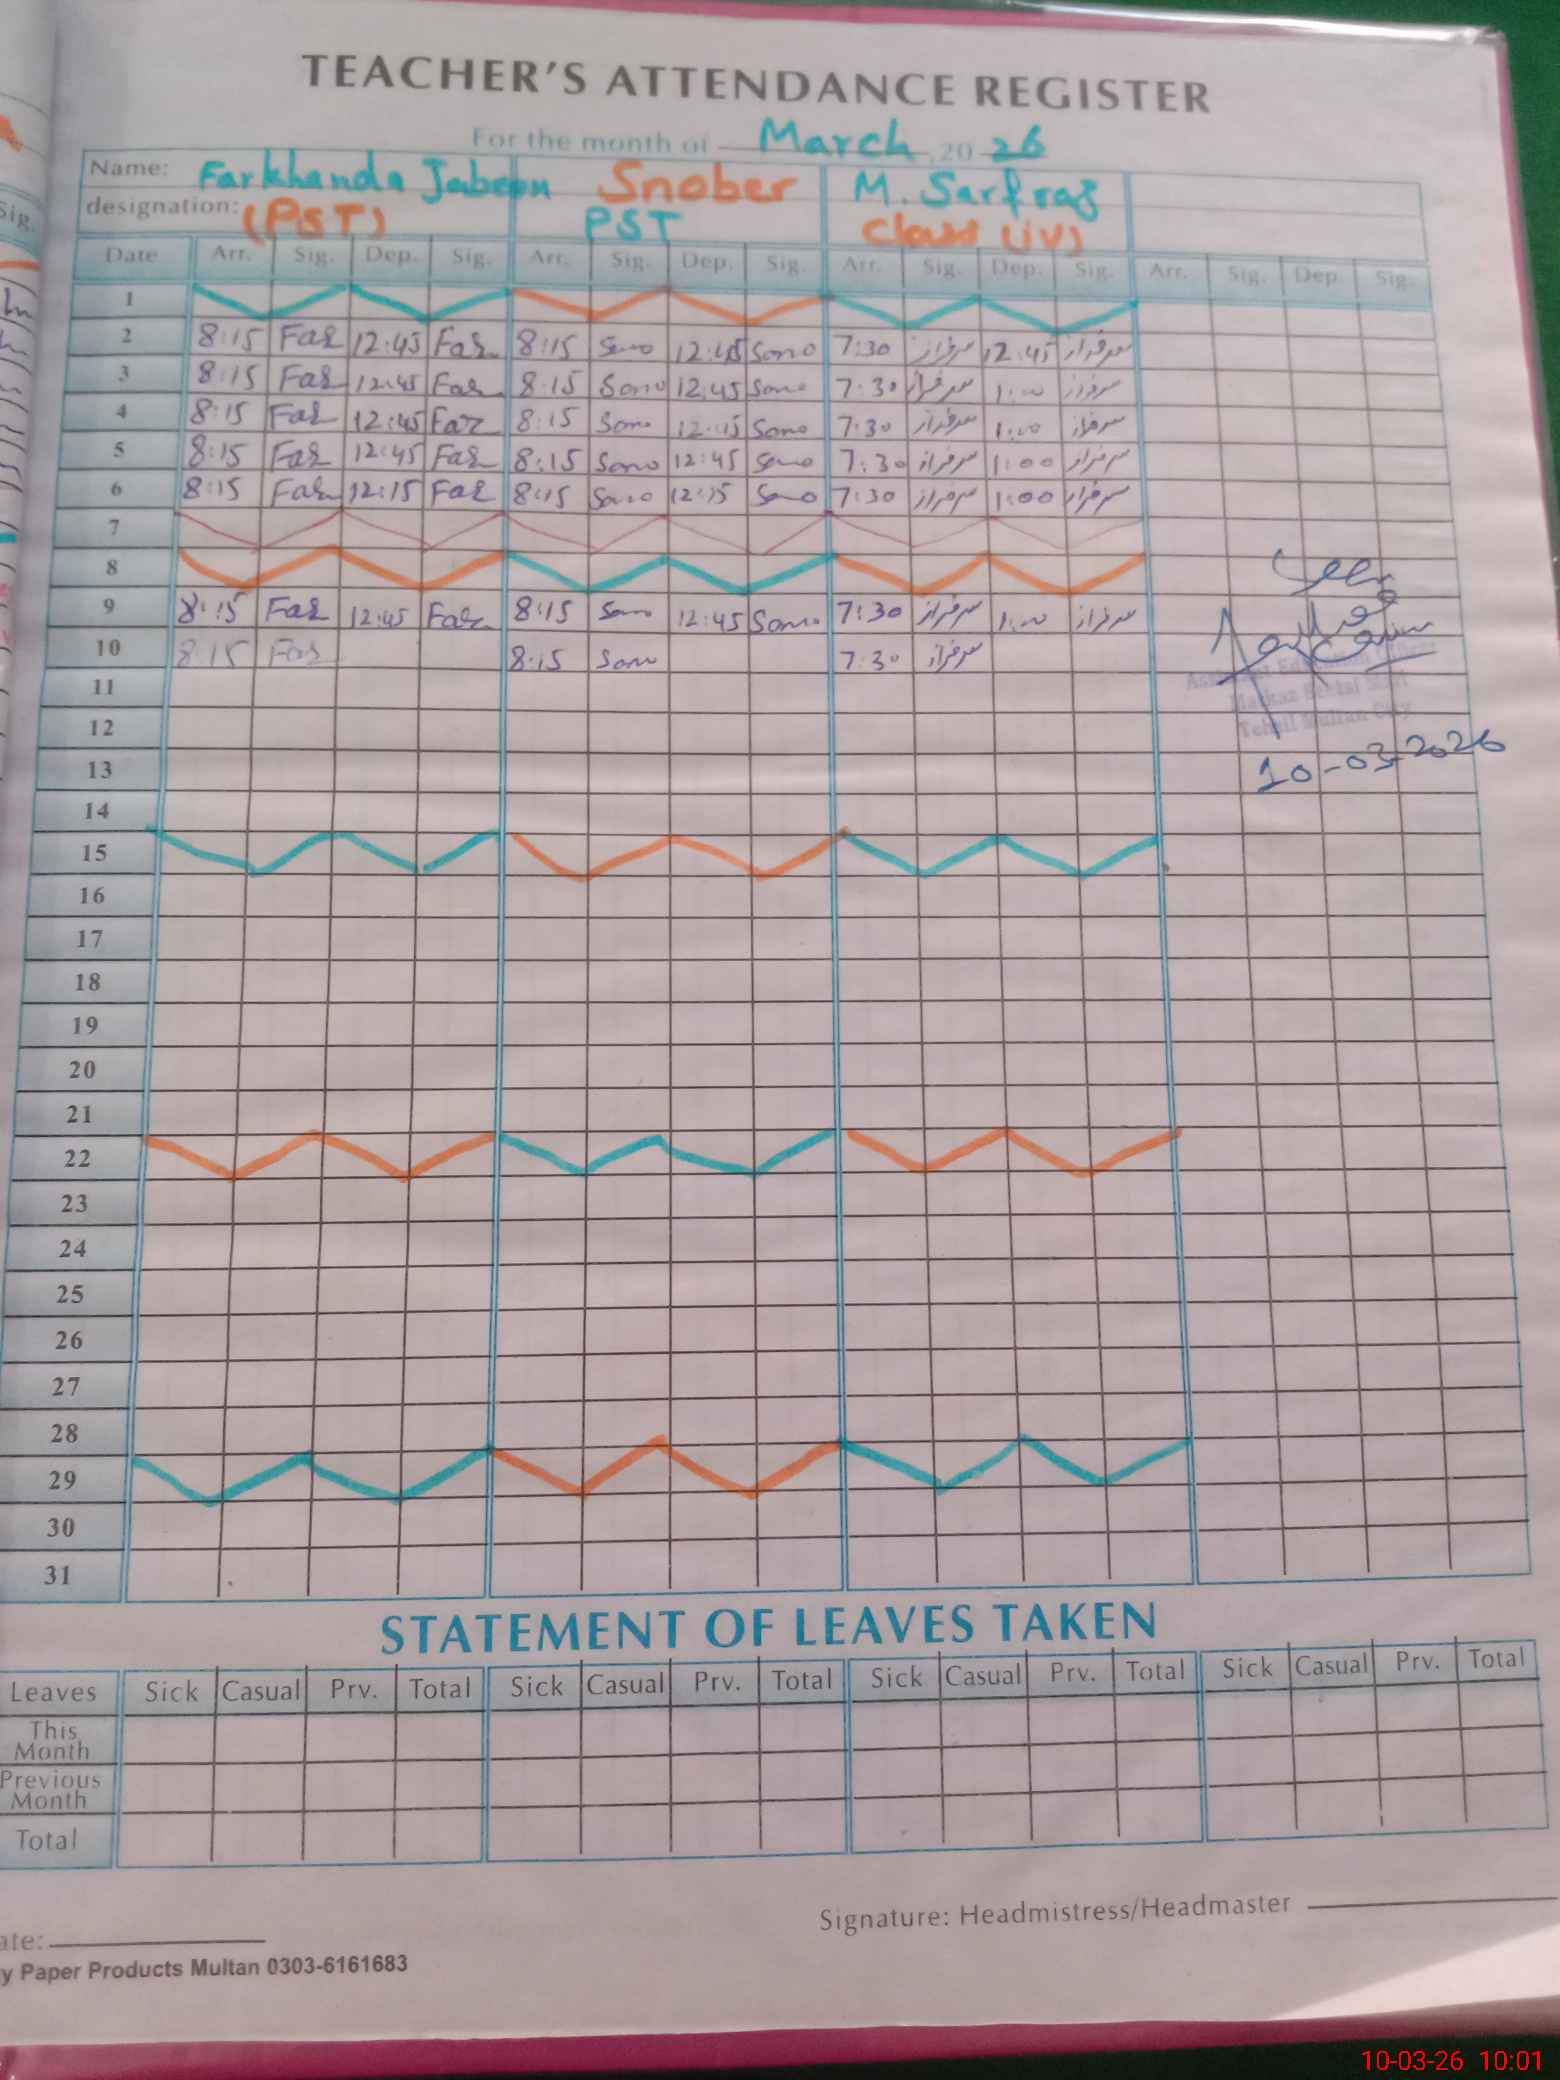 TEACHER'S ATTENDANCE REGISTER
For the month of March, 20 26
Name: Farkhanda Jabeen Snober M. Sarfraz
designation: (PST) PST Class (iv)
Date Arr. Sig. Dep. Sig. Arr. Sig. Dep. Sig. Arr. Sig. Dep. Sig. Arr. Sig. Dep. Sig.
1
2 8:15 Far 12:45 Far 8:15 Sono 12:45 Sono 7:30 سرفراز 12:45 سرفراز
3 8:15 Far 12:45 Far 8:15 Sono 12:45 Sono 7:30 سرفراز 1:00 سرفراز
4 8:15 Far 12:45 Far 8:15 Sono 12:45 Sono 7:30 سرفراز 1:00 سرفراز
5 8:15 Far 12:45 Far 8:15 Sono 12:45 Sono 7:30 سرفراز 1:00 سرفراز
6 8:15 Far 12:15 Far 8:15 Sono 12:15 Sono 7:30 سرفراز 1:00 سرفراز
7
8
9 8:15 Far 12:45 Far 8:15 Sono 12:45 Sono 7:30 سرفراز 1:00 سرفراز
10 8:15 Far 8:15 Sono 7:30 سرفراز
11
12
13
14
15
16
17
18
19
20
21
22
23
24
25
26
27
28
29
30
31
Seen
Tehsil Multan City
10-03-2026
STATEMENT OF LEAVES TAKEN
Leaves Sick Casual Prv. Total Sick Casual Prv. Total Sick Casual Prv. Total Sick Casual Prv. Total
This
Month
Previous
Month
Total
Signature: Headmistress/Headmaster
ate:
y Paper Products Multan 0303-6161683
10-03-26 10:01